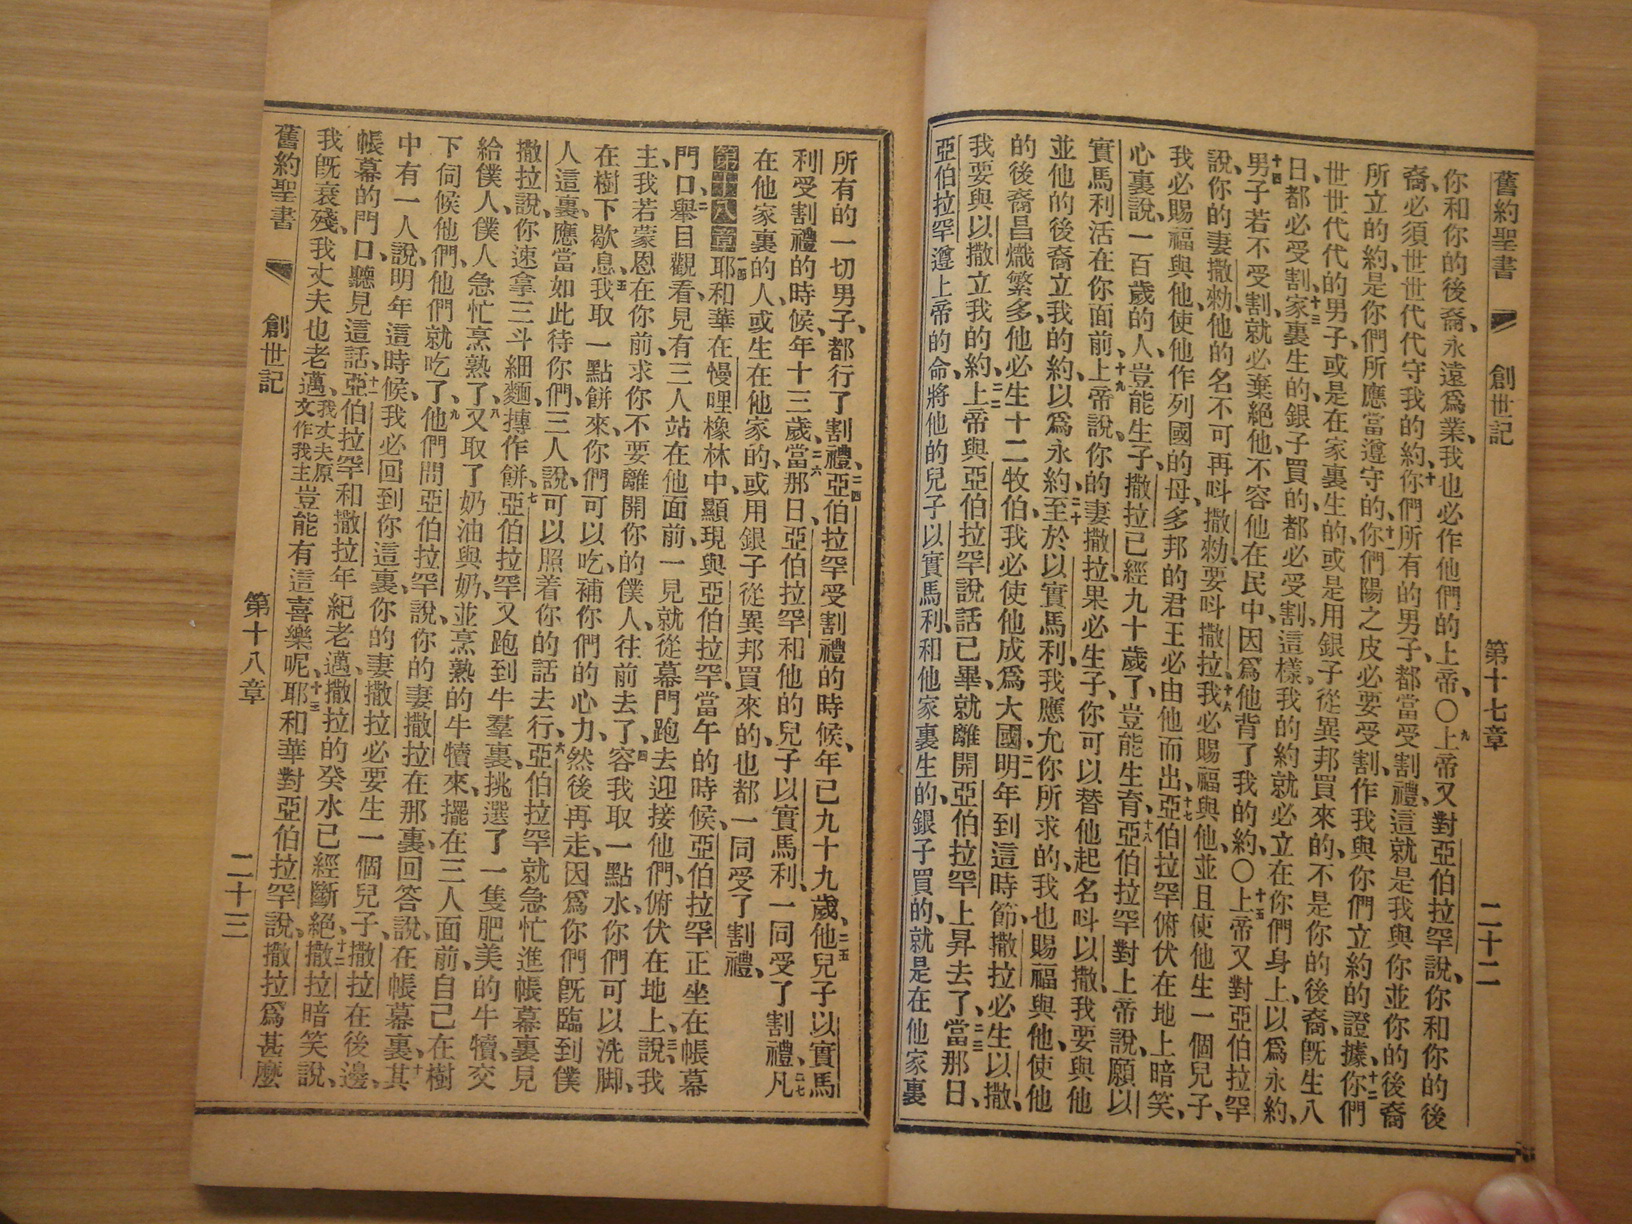 舊約聖書 創世記 第十七章 二十二
你和你的後裔、永遠爲業、我也必作他們的上帝、〇九上帝又對亞伯拉罕說、你和你的後
裔、必須世世代代守我的約、十你們所有的男子、都當受割禮、這就是我與你並你的後裔
所立的約、是你們所應當遵守的、十一你們陽之皮必要受割、作我與你們立約的證據、十二你們
世世代代的男子、或是在家裏生的、或是用銀子從異邦買來的、不是你的後裔、旣生八
日、都必受割、十三家裏生的、銀子買的、都必受割、這樣、我的約就必立在你們身上、以爲永約、
十四男子若不受割、就必棄絕他、不容他在民中、因爲他背了我的約、〇十五上帝又對亞伯拉罕
說、你的妻撒勑、他的名不可再呌撒勑、要呌撒拉、十六我必賜福與他、並且使他生一個兒子、
我必賜福與他、使他作列國的母、多邦的君王必由他而出、十七亞伯拉罕俯伏在地上暗笑、
心裏說、一百歲的人、豈能生子、撒拉已經九十歲了、豈能生育、十八亞伯拉罕對上帝說、願以
實馬利活在你面前、十九上帝說、你的妻撒拉、果必生子、你可以替他起名呌以撒、我要與他
並他的後裔立我的約、以爲永約、二十至於以實馬利、我應允你所求的、我也賜福與他、使他
的後裔昌熾繁多、他必生十二牧伯、我必使他成爲大國、二一明年到這時節、撒拉必生以撒、
我要與以撒立我的約、二二上帝與亞伯拉罕說話已畢、就離開亞伯拉罕上昇去了、二三當那日、
亞伯拉罕遵上帝的命、將他的兒子以實馬利、和他家裏生的、銀子買的、就是在他家裏
所有的一切男子、都行了割禮、二四亞伯拉罕受割禮的時候、年已九十九歲、二五他兒子以實馬
利受割禮的時候、年十三歲、二六當那日、亞伯拉罕和他的兒子以實馬利、一同受了割禮、二七凡
在他家裏的人、或生在他家的、或用銀子從異邦買來的、也都一同受了割禮、
第十八章 一耶和華在慢哩橡林中、顯現與亞伯拉罕、當午的時候、亞伯拉罕正坐在帳幕
門口、二舉目觀看、見有三人站在他面前、一見就從幕門跑去迎接他們、俯伏在地上、三說、我
主、我若蒙恩在你前、求你不要離開你的僕人、往前去了、四容我取一點水、你們可以洗脚、
在樹下歇息、五我取一點餅來、你們可以吃、補你們的心力、然後再走、因爲你們旣臨到僕
人這裏、應當如此待你們、三人說、可以照着你的話去行、六亞伯拉罕就急忙進帳幕裏見
撒拉說、你速拿三斗細麵、摶作餅、七亞伯拉罕又跑到牛羣裏、挑選了一隻肥美的牛犢、交
給僕人、僕人急忙烹熟了、八又取了奶油與奶、並烹熟的牛犢來、擺在三人面前、自己在樹
下伺候他們、他們就吃了、九他們問亞伯拉罕說、你的妻撒拉在那裏、回答說、在帳幕裏、十其
中有一人說、明年這時候、我必回到你這裏、你的妻撒拉必要生一個兒子、撒拉在後邊、
帳幕的門口、聽見這話、十一亞伯拉罕和撒拉年紀老邁、撒拉的癸水已經斷絕、十二撒拉暗笑說、
我旣衰殘、我丈夫也老邁、我丈夫原文作我主豈能有這喜樂呢、十三耶和華對亞伯拉罕說、撒拉爲甚麽
舊約聖書 創世記 第十八章 二十三